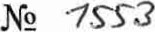 № 1553